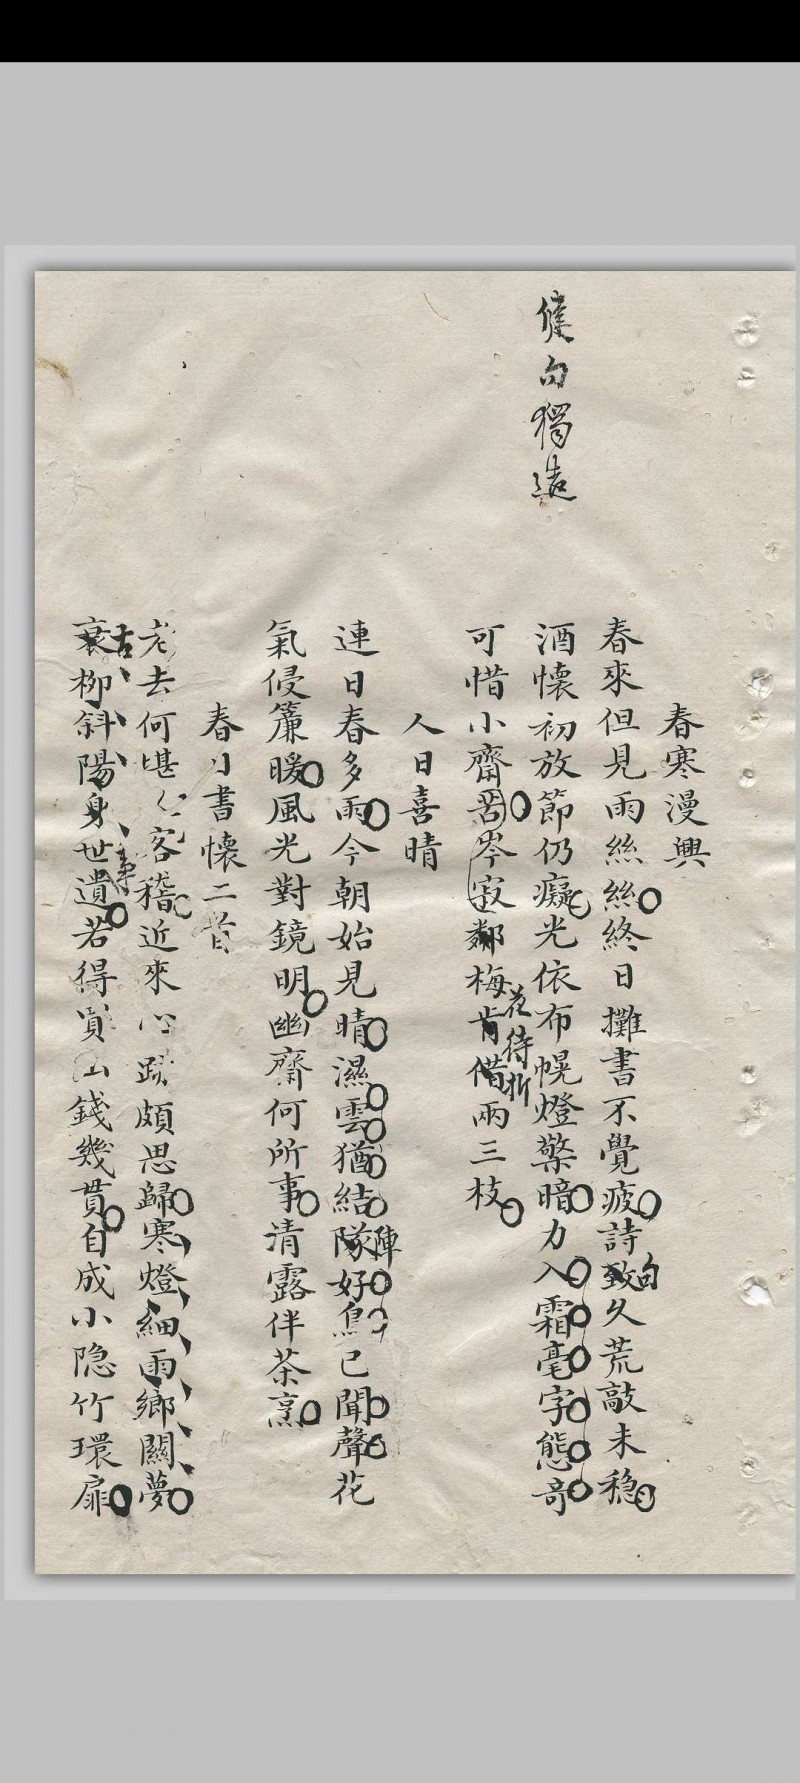 春寒漫興
春來但見雨絲絲終日攤書不覺疲詩致句久荒敲未穩
酒懷初放節仍癡光依布幌燈檠暗力入霜毫字態奇
僅句獨造
可惜小齋苦岑寂鄰梅肯借花待折兩三枝
人日喜晴
連日春多雨今朝始見晴濕雲猶結隊陣好鳥已聞聲花
氣侵簾暖風光對鏡明幽齋何所事清露伴茶烹
春日書懷二首
老去何堪久客稽近來心跡頗思歸寒燈細雨鄉關夢
衰古柳斜陽身世事遺若得買山錢幾貫自成小隐竹環扉